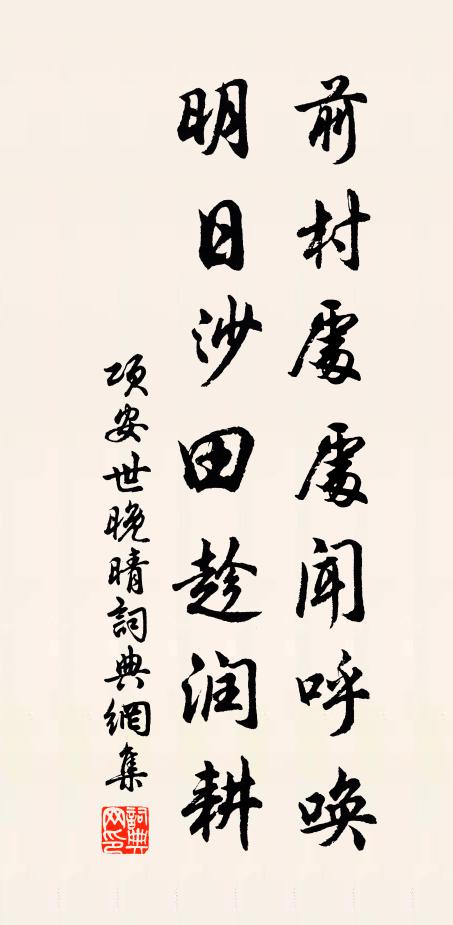 前村處處聞呼喚
明日沙田趁润耕
项安世晚晴詞典網集
詞典网印